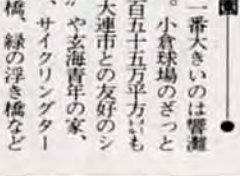 園
一番大きいのは響灘
。小倉球場のざっと
百五十五万平方㍍も
大連市との友好のシ
や玄海青年の家、
、サイクリングター
橋、緑の浮き橋など